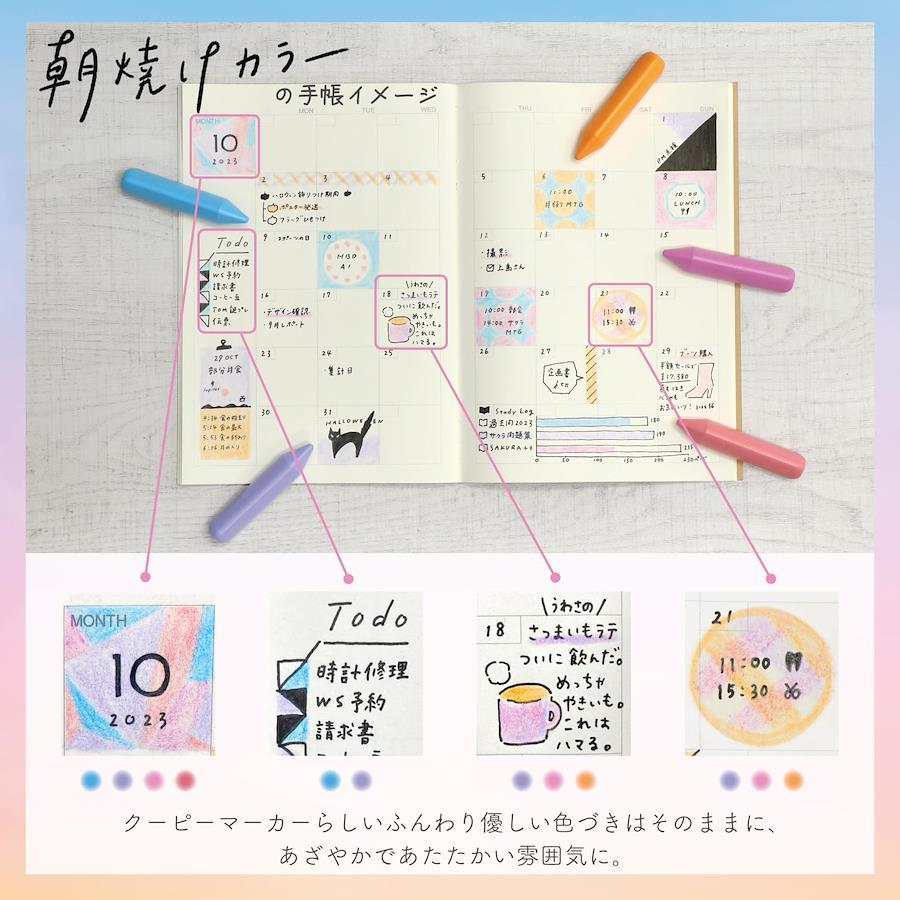 朝焼けカラー
の手帳イメージ
MONTH
10
2023
MON
TUE
WED
THU
FRI
SAT
SUN
1
2
3
4
ハロウィン飾りつけ期間
ポスター発送
5
6
11:00
月御MTG
7
8
10:00
LUNCH
Todo
時計修理
WS予約
請求書
コーヒー豆
伝票
9
スポーツの日
10
HBD
11
12
・撮影
上島さん
13
14
15
16
・デザイン確認
・9月レポート
17
18
\うわさの/
さつまいもラテ
ついに飲んだ。
めっちゃ
やきいも。
これは
ハマる。
19
10:00 部会
14:00 サクラ
MTG
20
21
11:00
15:30
22
29 OCT
部分月食
Jupiter
4:34 食の始まり
5:14 食の最大
5:53 食の終わり
6:06 月の入り
23
24
・集計日
25
26
27
企画書
28
29
ブーツ購入
半額セールで
¥17,380
size 36
30
31
HALLOWEEN
Study Log
過去問2023
180
サクラ問題集
190
SAKURA++
235
0
50
100
150
200
250
MONTH
10
2023
Todo
時計修理
WS予約
請求書
\うわさの/
18
さつまいもラテ
ついに飲んだ。
めっちゃ
やきいも。
これは
ハマる。
21
11:00
15:30
クーピーマーカーらしいふんわり優しい色づきはそのままに、
あざやかであたたかい雰囲気に。